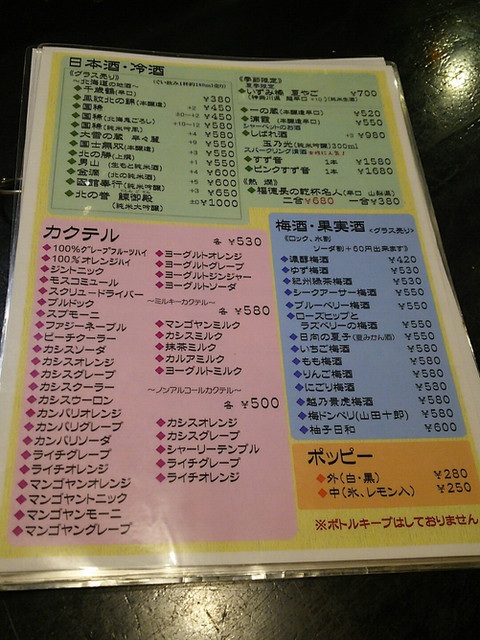 日本酒・冷酒
《グラス売り》
～北海道の地酒～
千歳鶴(辛口) ¥380
風紋北の錦(本醸造) +2 ¥450
国稀 +4 ¥450
国稀(北海鬼ごろし) +10～+12 ¥580
国稀(純米吟風)
大雪の蔵 +4 ¥550
国士無双(本醸造) +3 ¥550
北の勝(上撰) ¥550
男山(生もと純米酒) ¥580
金滴(北の純米酒) ¥600
函館奉行(純米吟醸) +3 ¥650
北の誉 鰊御殿 ±0 ¥1000
(純米大吟醸)
《季節限定》
夏季限定
いずみ橋 夏やご ¥700
(神奈川県 超辛口+10)(純米生酒)
一の蔵(本醸造辛口) ¥520
讃霞(本醸造辛口) ¥550
シャーベットのお酒
しばれ酒 +3 ¥980
玉乃光(純米吟醸)300ml
スパークリング清酒
すず音 1本 ¥1580
ピンクすず音 1本 ¥1680
《熱燗》
福徳長の乾杯名人(辛口 山梨県)
二合¥680 一合¥380
カクテル 各 ¥530
100%グレープフルーツハイ
100%オレンジハイ
ジントニック
モスコミュール
スクリュードライバー
ブルドック
スプモーニ
ファジーネーブル
ピーチクーラー
カシスソーダ
カシスオレンジ
カシスグレープ
カシスクーラー
カシスウーロン
カンパリオレンジ
カンパリグレープ
カンパリソーダ
ライチグレープ
ライチオレンジ
マンゴヤンオレンジ
マンゴヤントニック
マンゴヤンモーニ
マンゴヤングレープ
ヨーグルトオレンジ
ヨーグルトグレープ
ヨーグルトジンジャー
ヨーグルトソーダ
～ミルキーカクテル～ 各 ¥580
マンゴヤンミルク
カシスミルク
抹茶ミルク
カルアミルク
ヨーグルトミルク
～ノンアルコールカクテル～
各 ¥500
カシスオレンジ
カシスグレープ
シャーリーテンプル
ライチグレープ
ライチオレンジ
梅酒・果実酒 《グラス売り》
《ロック、水割
ソーダ割+60円出来ます》
濃醇梅酒 ¥420
ゆず梅酒 ¥530
紀州緑茶梅酒 ¥530
シークアーサー梅酒 ¥550
ブルーベリー梅酒 ¥550
ローズヒップと
ラズベリーの梅酒 ¥550
日向の夏子(夏みかん酒) ¥550
いちご梅酒 ¥580
もも梅酒 ¥580
りんご梅酒 ¥580
にごり梅酒 ¥580
越乃景虎梅酒 ¥580
梅ドンペリ(山田十郎) ¥580
柚子日和 ¥600
ホッピー
外(白・黒) ¥280
中(氷、レモン入) ¥250
※ボトルキープはしておりません